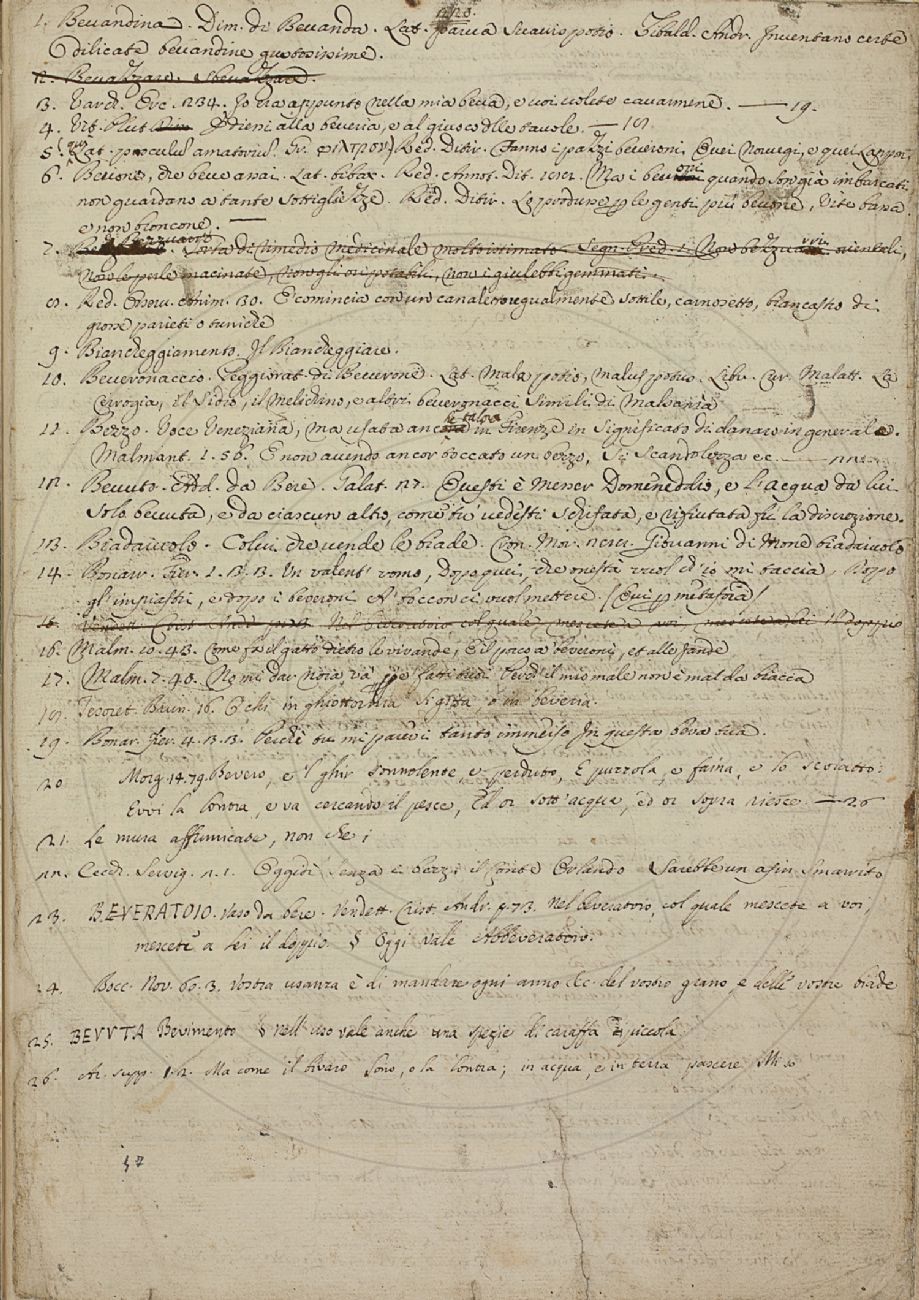 220.
1. Bevandina. Dim. di Bevanda. Lat. parva suavis potio. Tibald. Andr. Inventano certe
dilicate bevandine gustosissime.
2. Bevazzare. Sbevazzare.
3. Varch. Erc. 234. Io era appunto nella mia beva, e voi volete cavarmene. — 19.
4. Vit. Plut. Ordieni alla beveria, e al giuoco delle tavole. — 18
5. Lat. poculum amatorium. Gr. φίλτρον) Red. Ditir. Fanno i pazzi beveroni, Quei Norvegi, e quei Lapponi,
6. Bevione, che beve assai. Lat. bibax. Red. Annot. Dit. Ma i bevioni quando son già imbarcati
non guardano a tante sottigliezze. Red. Ditir. Le genti più bevone, Vite bassa
e non broncone. —
7. Bezzuarro. Sorta di rimedio medicinale molto stimato. Segn. Pred. 1. Non bezzuarri orientali,
non le perle macinate, non gli ori potabili, non i giulebbi gemmati.
8. Red. Osserv. Anim. 130. E comincia con un canaletto egualmente sottile, carnosetto, biancastro di
grosse parieti o tuniche
9. Biancheggiamento. Il Biancheggiare.
10. Beveronaccio. Peggiorat. di Beverone. Lat. Mala potio, malus potus. Libr. Cur. Malatt. La
Cervogia, il Sidro, il Melichino, e altri beveronacci simili di Malsania
11. Bezzo. Voce Veneziana, ma usata ancora talora in Firenze in significato di danaro in generale.
Malmant. 1. 56. E non avendo ancor toccato un bezzo, Si scandolezza ec. — 22
12. Bevuto. Add. da Bere. Galat. 27. Questi è Messer Domeneddio, e l'acqua da lui
solo bevuta, e da ciascun altro, come tu vedesti schifata, e rifiutata fu la discrezione.
13. Biadaiuolo. Colui, che vende le biade. Cron. Mor. Giovanni di Mone biadaiuolo
14. Bonarr. Fier. 1. 2. 3. Un valent' uomo, Dopo quei, che onestà vuol ch' io mi taccia, Dopo
gl' impiastri, e dopo i beveroni A' bocconci vuol mettere. (Qui p metafora)
15. Vendett. Crist. Andr. Nel beveratoio col quale mescete a voi, mescete a lei il doppio
16. Malm. 10. 43. Come fa il gatto dietro le vivande, E il porco a' beveroni, et alle giande
17. Malm. 7. 40. No mi dar noia, va' pe' fatti tuoi Perch' il mio male non è mal da biacca
18. Tesoret. Brun. 16. E chi in ghiottornia Si getta o in beveria.
19. Bonar. Fier. 4. 2. 3. Perchè tu mi parevi tanto immerso In questa beva tua.
20. Morg. 14. 79. Bevero, e 'l ghir sonnolente, e perduto, E puzzola, e faina, e lo scoiatto:
Evvi la lontra, e va cercando il pesce, Ed or sott' acqua, ed or sopra riesce — 26
21. Le mura affumicate, non che i
22. Cecch. Servig. 2. 1. Oggidì senza e bezzi il Conte Orlando Sarebbe un asin smarrito
23. BEVERATOIO. Vaso da bere. Vendett. Crist. Andr. 973. Nel beveratoio, col quale mescete a voi,
mescete a lei il doppio. § Oggi vale Abbeveratoio.
24. Bocc. Nov. 60. 3. Vostra usanza è di mandare ogni anno &c. del vostro grano, e delle vostre biade
25. BEVUTA Bevimento § nell' uso vale anche una spezie di caraffa piccola
26. Ar. supp. 1. 2. Ma come il bivaro sono, o la lontra; in acqua, e in terra pascere Mi so